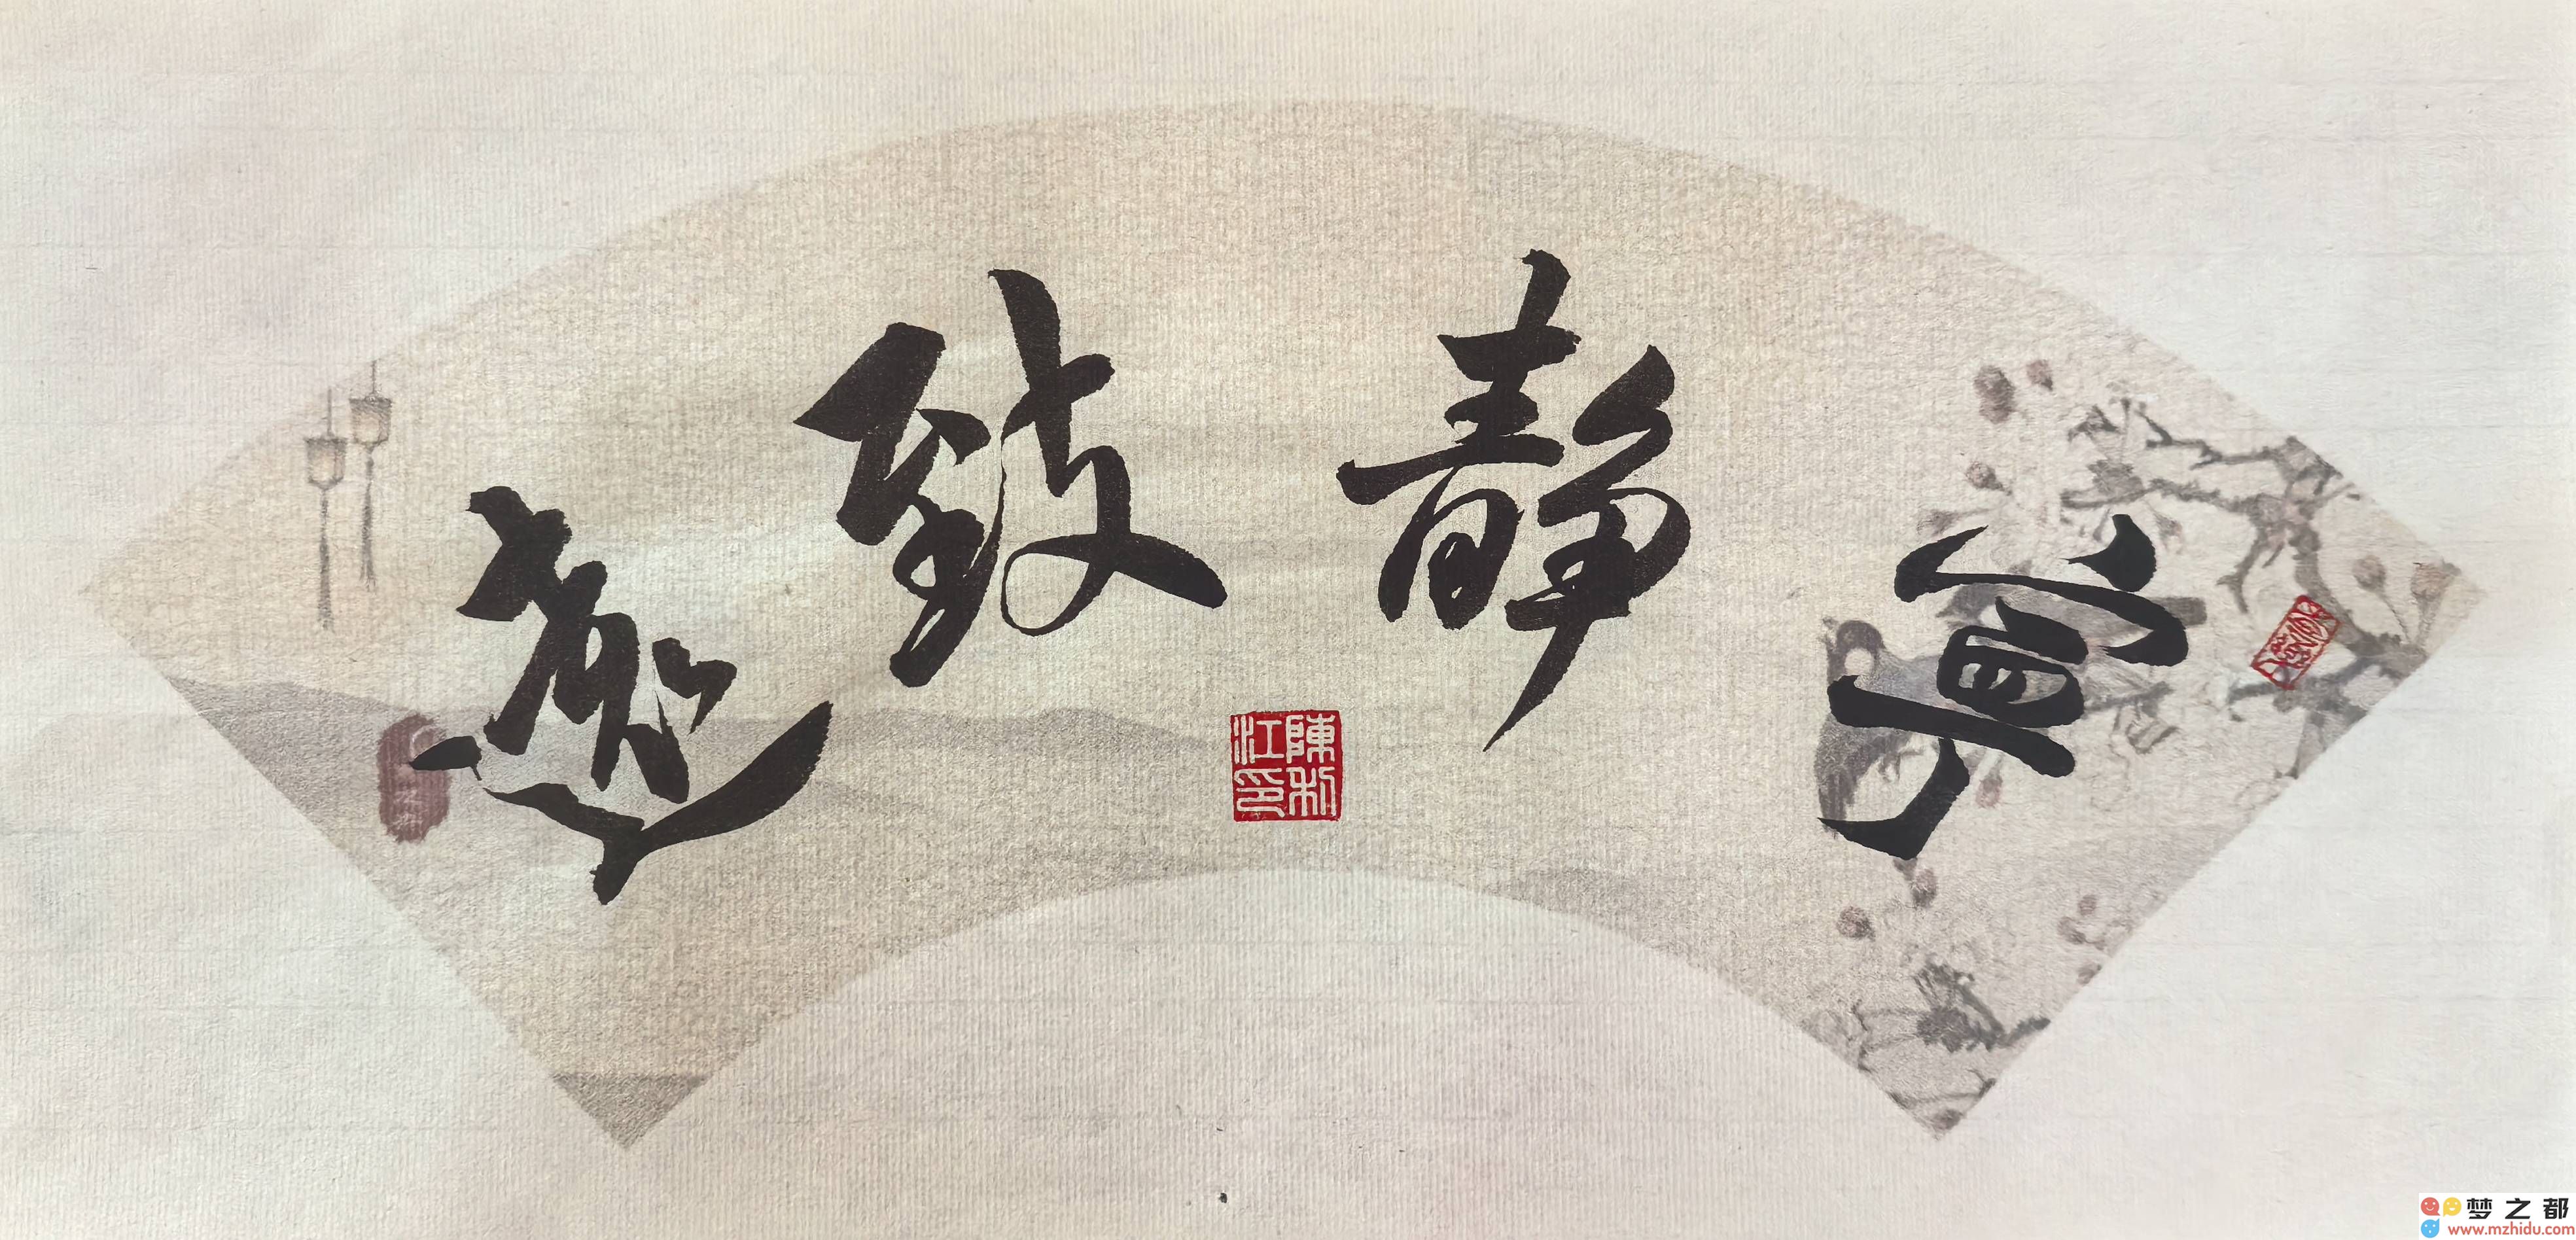 寧靜致遠
陳利江印
梦之都
www.mzhidu.com